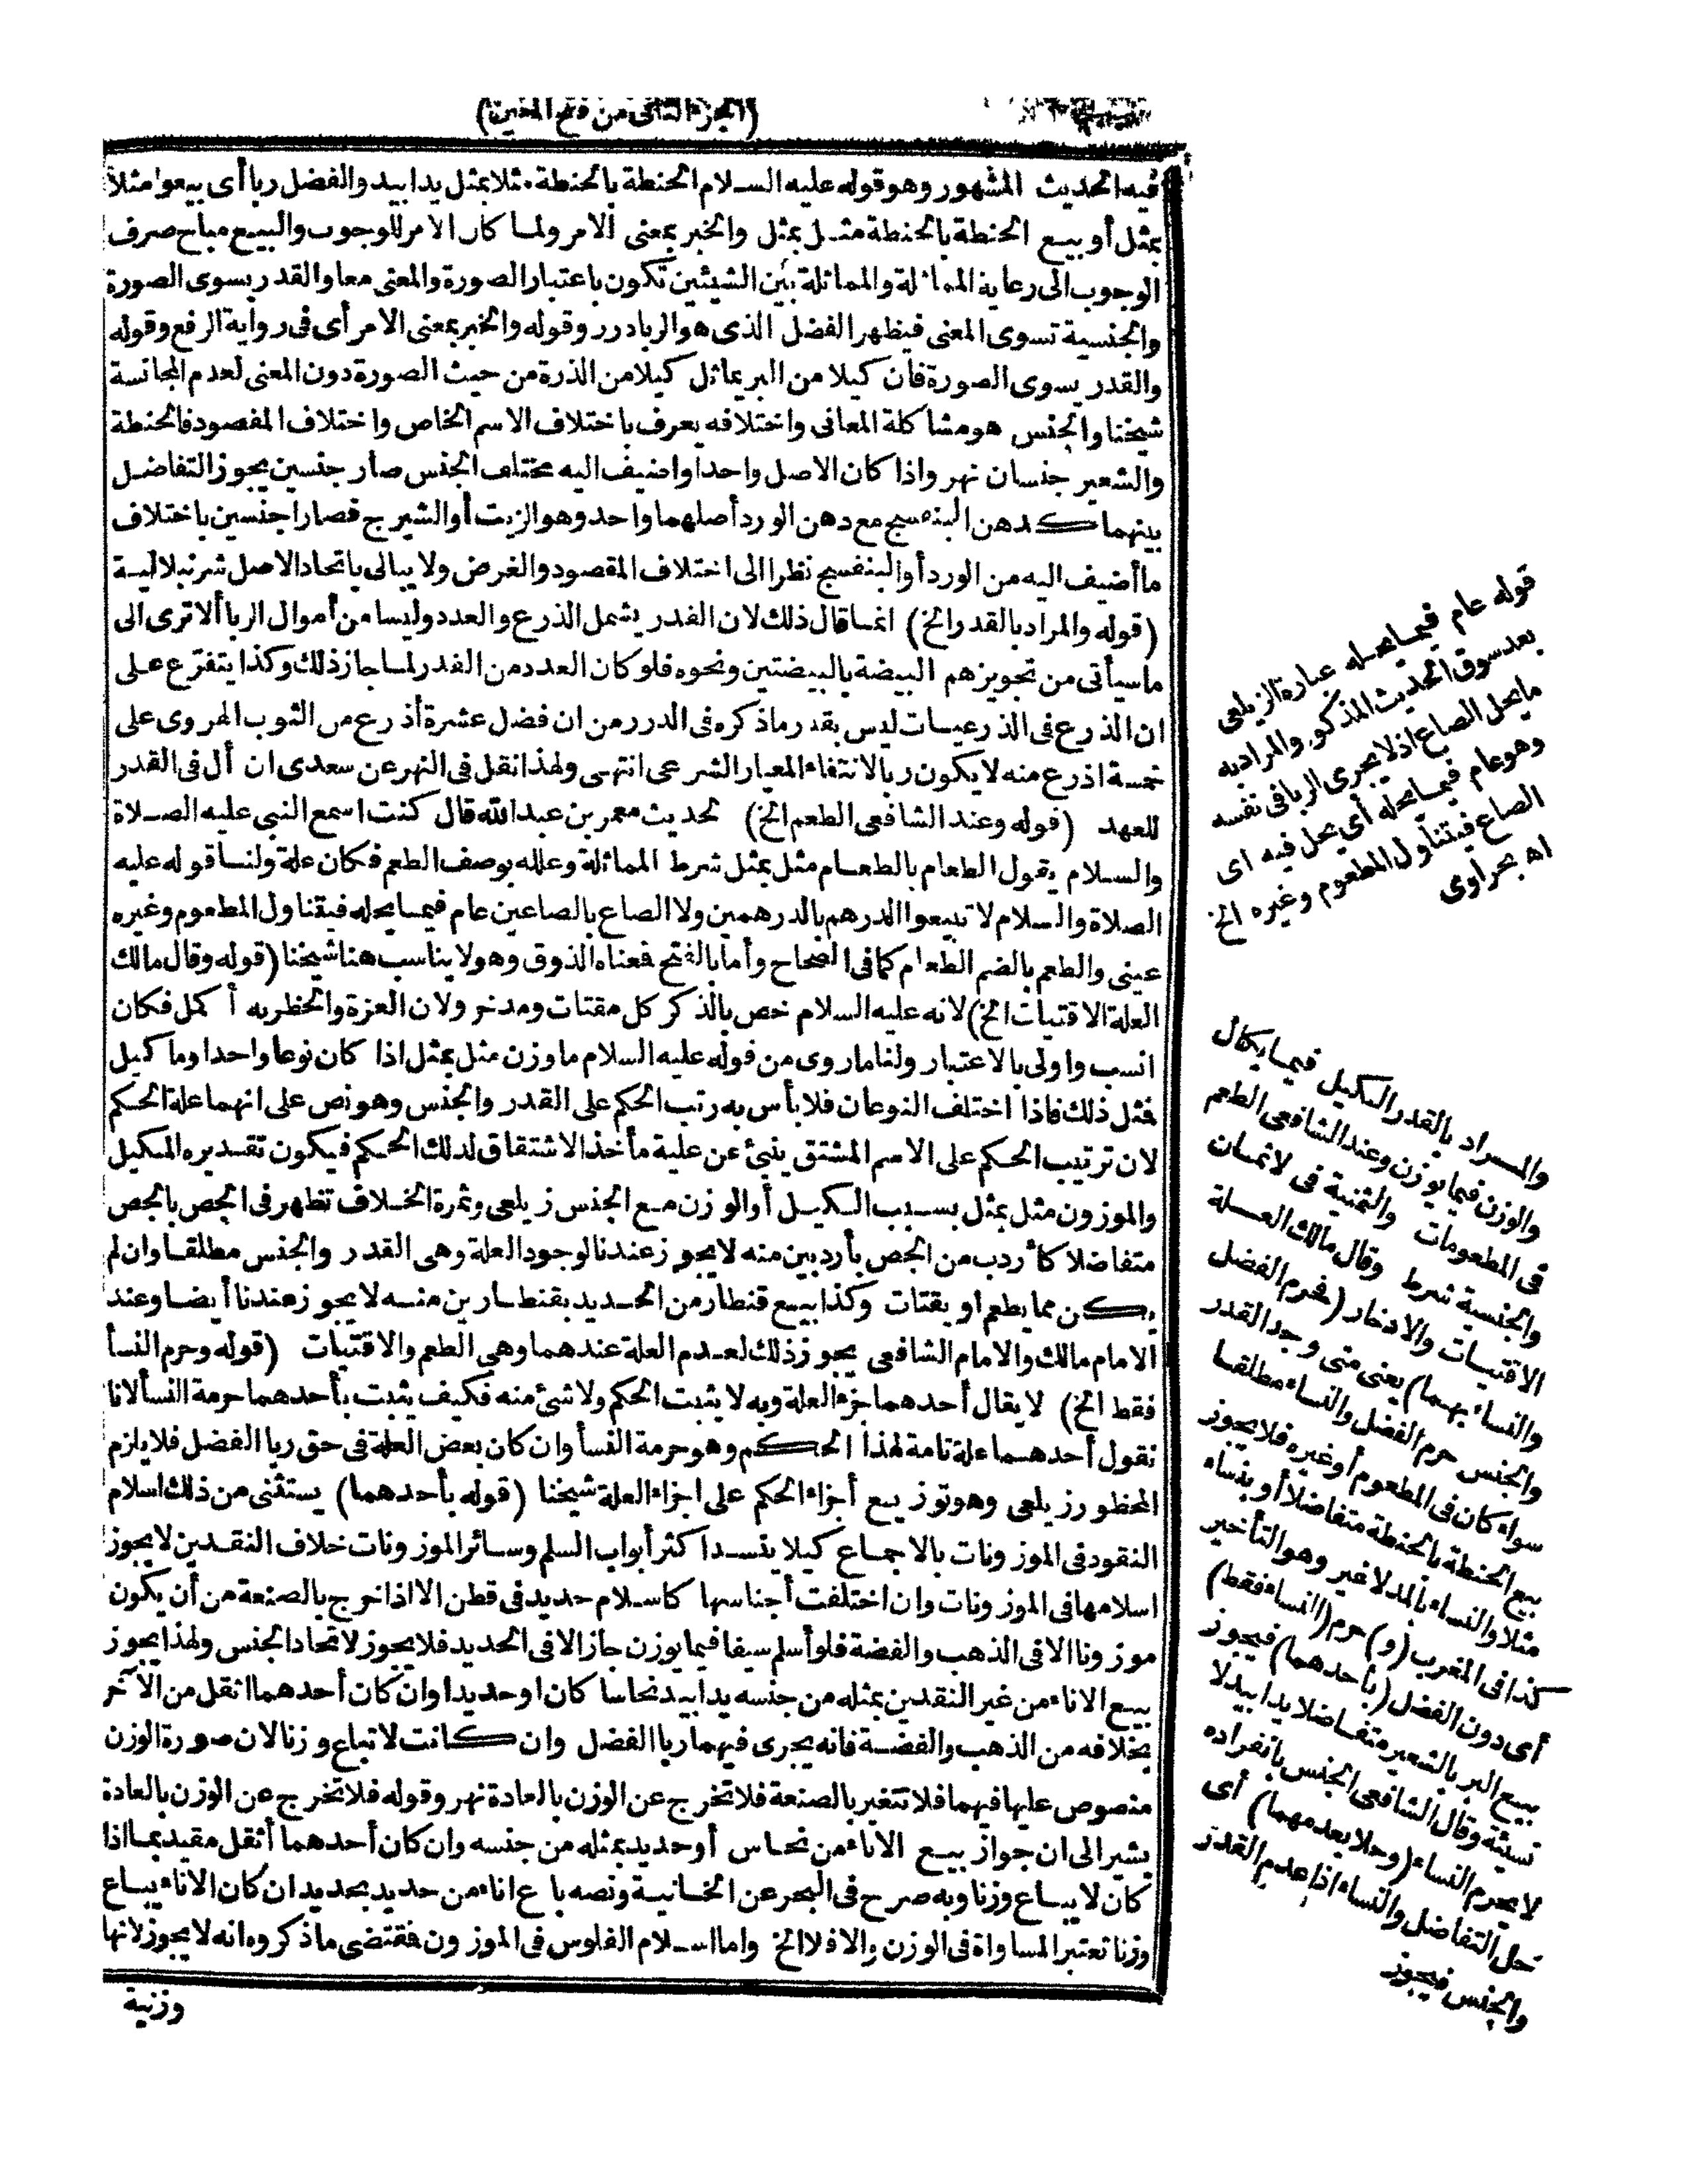 (الجزء الثانى من فتح المعين)
فيه الحديث المشهور وهو قوله عليه السلام الحنطة بالحنطة مثلا بمثل يدا بيد والفضل ربا أى بيعوا مثلا
بمثل أو بيع الحنطة بالحنطة مثل بمثل والخبر بمعنى الامر ولما كان الامر للوجوب والبيع مباح صرف
الوجوب الى رعاية المماثلة والمماثلة بين الشيئين تكون باعتبار الصورة والمعنى معا والقدر يسوى الصورة
والجنسية تسوى المعنى فيظهر الفضل الذى هو الربا درر وقوله والخبر بمعنى الامر أى فى رواية الرفع وقوله
والقدر يسوى الصورة فان كيلا من البر يماثل كيلا من الذرة من حيث الصورة دون المعنى لعدم المجانسة
شيخنا والجنس هو مشاكلة المعانى واختلافه يعرف باختلاف الاسم الخاص واختلاف المقصود فالحنطة
والشعير جنسان نهر واذا كان الاصل واحدا واضيف اليه مختلف الجنس صار جنسين يجوز التفاضل
بينهما كدهن البنفسج مع دهن الورد أصلهما واحد وهو الزيت أو الشيرج فصارا جنسين باختلاف
ما أضيف اليه من الورد أو البنفسج نظرا الى اختلاف المقصود والغرض ولا يبالى باتحاد الاصل شرنبلالية
(قوله والمراد بالقدر الخ) انما قال ذلك لان القدر يشمل الذرع والعدد وليسا من أموال الربا ألا ترى الى
ما سيأتى من تجويزهم البيضة بالبيضتين ونحوه فلو كان العدد من القدر لما جاز ذلك وكذا يتفرع على
ان الذرع فى الذرعيات ليس بقدر ما ذكره فى الدرر من ان فضل عشرة أذرع من الثوب الهروى على
خمسة اذرع منه لا يكون ربا لانتفاء المعيار الشرعى انتهى ولهذا نقل فى النهر عن سعدى ان أل فى القدر
للعهد (قوله وعند الشافعى الطعم الخ) لحديث معمر بن عبد الله قال كنت اسمع النبى عليه الصلاة
والسلام يقول الطعام بالطعام مثل بمثل شرط المماثلة وعلله بوصف الطعم فكان علة ولنا قوله عليه
الصلاة والسلام لا تبيعوا الدرهم بالدرهمين ولا الصاع بالصاعين عام فيما يحله فيتناول المطعوم وغيره
عينى والطعم بالضم الطعام كما فى الصحاح وأما بالفتح فمعناه الذوق وهو لا يناسب هنا شيخنا (قوله وقال مالك
العلة الاقتيات الخ) لانه عليه السلام خص بالذكر كل مقتات ومدخر ولان العزة والخطر به أكمل فكان
انسب واولى بالاعتبار ولنا ما روى من قوله عليه السلام ما وزن مثل بمثل اذا كان نوعا واحدا وما كيل
فمثل ذلك فاذا اختلف النوعان فلا بأس به رتب الحكم على القدر والجنس وهو نص على انهما علة الحكم
لان ترتيب الحكم على الاسم المشتق ينبئ عن علية مأخذ الاشتقاق لذلك الحكم فيكون تقديره المكيل
والموزون مثل بمثل بسبب الكيل أو الوزن مع الجنس زيلعى وثمرة الخلاف تظهر فى الجص بالجص
متفاضلا كأردب من الجص بأردبين منه لا يجوز عندنا لوجود العلة وهى القدر والجنس مطلقا وان لم
يكن مما يطعم او يقتات وكذا بيع قنطار من الحديد بقنطارين منه لا يجوز عندنا أيضا وعند
الامام مالك والامام الشافعى يجوز ذلك لعدم العلة عندهما وهى الطعم والاقتيات (قوله وحرم النسأ
فقط الخ) لا يقال أحدهما جزء العلة وبه لا يثبت الحكم ولا شئ منه فكيف يثبت بأحدهما حرمة النسأ لانا
نقول أحدهما علة تامة لهذا الحكم وهو حرمة النسأ وان كان بعض العلة فى حق ربا الفضل فلا يلزم
المحظور زيلعى وهو توزيع أجزاء الحكم على اجزاء العلة شيخنا (قوله بأحدهما) يستثنى من ذلك اسلام
النقود فى الموزونات بالاجماع كيلا ينسد اكثر أبواب السلم وسائر الموزونات خلاف النقدين لا يجوز
اسلامها فى الموزونات وان اختلفت أجناسها كاسلام حديد فى قطن الا اذا خرج بالصنعة من أن يكون
موزونا الا فى الذهب والفضة فلو أسلم سيفا فيما يوزن جاز الا فى الحديد فلا يجوز لاتحاد الجنس ولهذا يجوز
بيع الاناء من غير النقدين بمثله من جنسه يدا بيد نحاسا كان او حديدا وان كان أحدهما اثقل من الآخر
بخلافه من الذهب والفضة فانه يجرى فيهما ربا الفضل وان كانت لا تباع وزنا لان صورة الوزن
منصوص عليها فيهما فلا تتغير بالصنعة فلا تخرج عن الوزن بالعادة نهر وقوله فلا تخرج عن الوزن بالعادة
يشير الى ان جواز بيع الاناء من نحاس أو حديد بمثله من جنسه وان كان أحدهما أثقل مقيد بما اذا
كان لا يباع وزنا وبه صرح فى البحر عن الخانية ونصه باع اناء من حديد بحديد ان كان الاناء يباع
وزنا تعتبر المساواة فى الوزن والا فلا الخ واما اسلام الفلوس فى الموزون فمقتضى ما ذكروه انه لا يجوز لانها
وزنية
قوله عام فيما يحله عبارة الزيلعى
بعد سوق الحديث المذكور والمراد به
ما يحل الصاع اذ لا يجرى الربا فى نفسه
وهو عام فيما يحله أى يحل فيه اى
الصاع فيتناول المطعوم وغيره الخ
اه بحراوى
والمراد بالقدر الكيل فيما يكال
والوزن فيما يوزن وعند الشافعى الطعم
فى المطعومات والثمنية فى لاثمان
والجنسية شرط وقال مالك العلة
الاقتيات والادخار (فحرم الفضل
والنساء بهما) يعنى متى وجد القدر
والجنس حرم الفضل والنساء مطلقا
سواء كان فى المطعوم أو غيره فلا يجوز
بيع الحنطة بالحنطة متفاضلا أو بنساء
مثلا والنساء بالمد لا غير وهو التأخير
كذا فى المغرب (و) حرم (النساء فقط)
أى دون الفضل (بأحدهما) فيجوز
بيع البر بالشعير متفاضلا يدا بيد لا
نسيئة وقال الشافعى الجنس بانفراده
لا يحرم النساء (وحلا بعدمهما) أى
حل التفاضل والنساء اذا عدم القدر
والجنس فيجوز